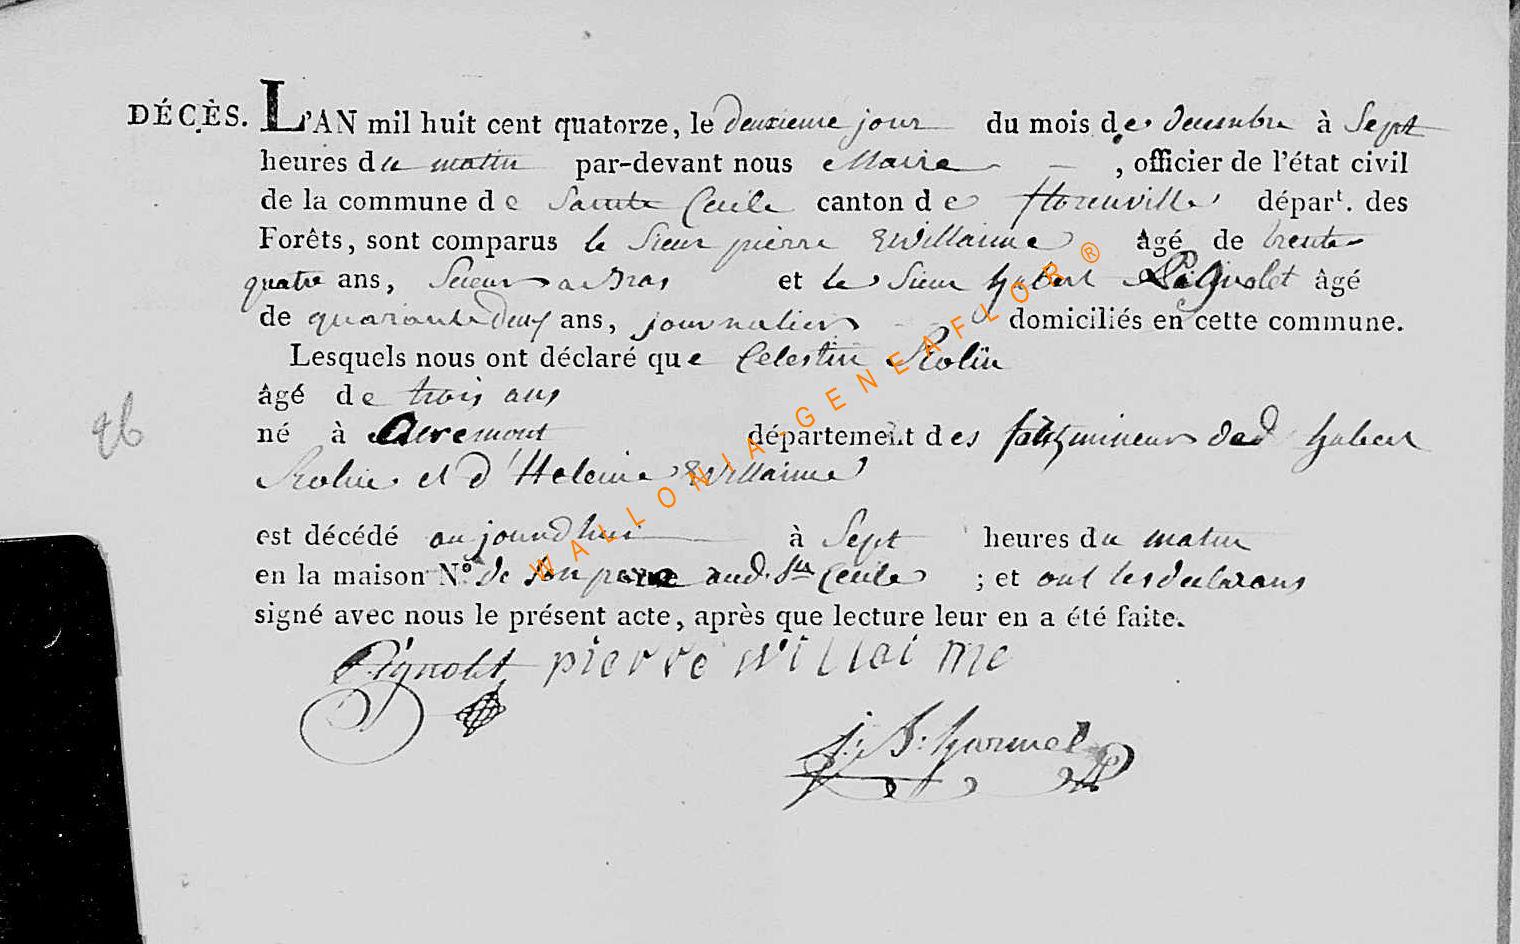 DÉCÈS. L'AN mil huit cent quatorze, le deuxieme jour du mois de decembre à Sept
heures du matin par-devant nous Maire , officier de l'état civil
de la commune de Sainte Cecile canton de florenville dépar.t des
Forêts, sont comparus le Sieur pierre Willaime âgé de trente
quatre ans, Scieur a Bras et le Sieur hubert Pignolet âgé
de quarante deux ans, journalier domiciliés en cette commune.
Lesquels nous ont déclaré que Celestin Rolin
âgé de trois ans
né à département des fils mineur de hubert
26
Rolin et d'Heleine Willaime
est décédé aujourdhui à Sept heures du matin
en la maison N.o de son pere aud. Ste Cecile ; et ont les declarans
signé avec nous le présent acte, après que lecture leur en a été faite.
Pignolet pierre willai me
j: B: hormel
WALLONIA-GENEAFLOR®